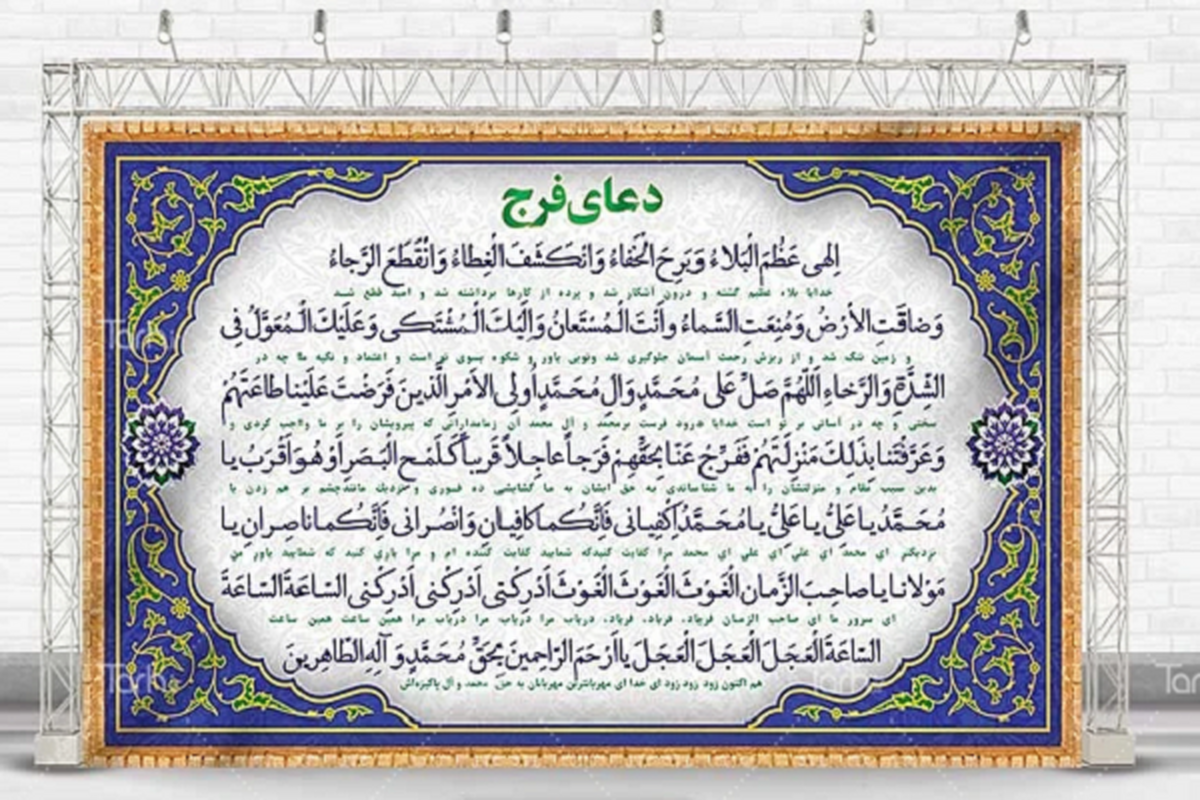 دعای فرج
اِلهی عَظُمَ الْبَلاءُ وَ بَرِحَ الْخَفاءُ وَ انْکَشَفَ الْغِطاءُ وَ انْقَطَعَ الرَّجاءُ
خدایا بلاء عظیم گشته و درون آشکار شد و پرده از کارها برداشته شد و امید قطع شد
وَ ضاقَتِ الأرْضُ وَ مُنِعَتِ السَّماءُ وأنْتَ الْمُسْتَعانُ وَ إلَیْكَ الْمُشْتَکی وَ عَلَیْكَ الْمُعَوَّلُ فِی
و زمین تنگ شد و از ریزش رحمت آسمان جلوگیری شد وتویی یاور و شکوه بسوی تو است و اعتماد و تکیه ما چه در
الشِّدَّةِ وَ الرَّخاءِ اَللّهُمَّ صَلِّ عَلی مُحَمَّدٍ وَ الِ مُحَمَّدٍ اُولِی الاَمْرِ الَّذینَ فَرَضْتَ عَلَیْنا طاعَتَهُمْ
سختی و چه در آسانی بر تو است خدایا درود فرست برمحمد و آل محمد آن زمامدارانی که پیرویشان را بر ما واجب کردی و
وَ عَرَّفْتَنا بِذلِكَ مَنْزِلَتَهُمْ فَفَرِّجْ عَنّا بِحَقِّهِمْ فَرَجاً عاجِلاً قَریباً کَلَمْحِ الْبَصَرِ اَوْ هُوَ اَقْرَبُ یا
بدین سبب مقام و منزلتشان را به ما شناساندی به حق ایشان به ما گشایشی ده فوری و نزدیك مانندچشم بر هم زدن یا
مُحَمَّدُ یا عَلِیُّ یا عَلِیُّ یا مُحَمَّدُ اِکْفِیانی فَاِنَّکُما کافِیانِ وَ انْصُرانی فَاِنَّکُما ناصِرانِ یا
نزدیکتر ای محمد ای علی ای علی ای محمد مرا کفایت کنیدکه شمایید کفایت کننده ام و مرا یاری کنید که شمایید یاور من
مَوْلانا یا صاحِبَ الزَّمانِ الْغَوْثَ الْغَوْثَ الْغَوْثَ اَدْرِکْنی اَدْرِکْنی اَدْرِکْنی السّاعَةَ السّاعَةَ
ای سرور ما ای صاحب الزمان فریاد، فریاد، فریاد، دریاب مرا دریاب مرا دریاب مرا همین ساعت همین ساعت
السّاعَةَ الْعَجَلَ الْعَجَلَ الْعَجَلَ یا اَرْحَمَ الرّاحِمینَ بِحَقِّ مُحَمَّدٍ وَ آلِهِ الطّاهِرینَ
هم اکنون زود زود زود ای خدا ای مهربانترین مهربانان به حق محمد و آل پاکیزه‌اش